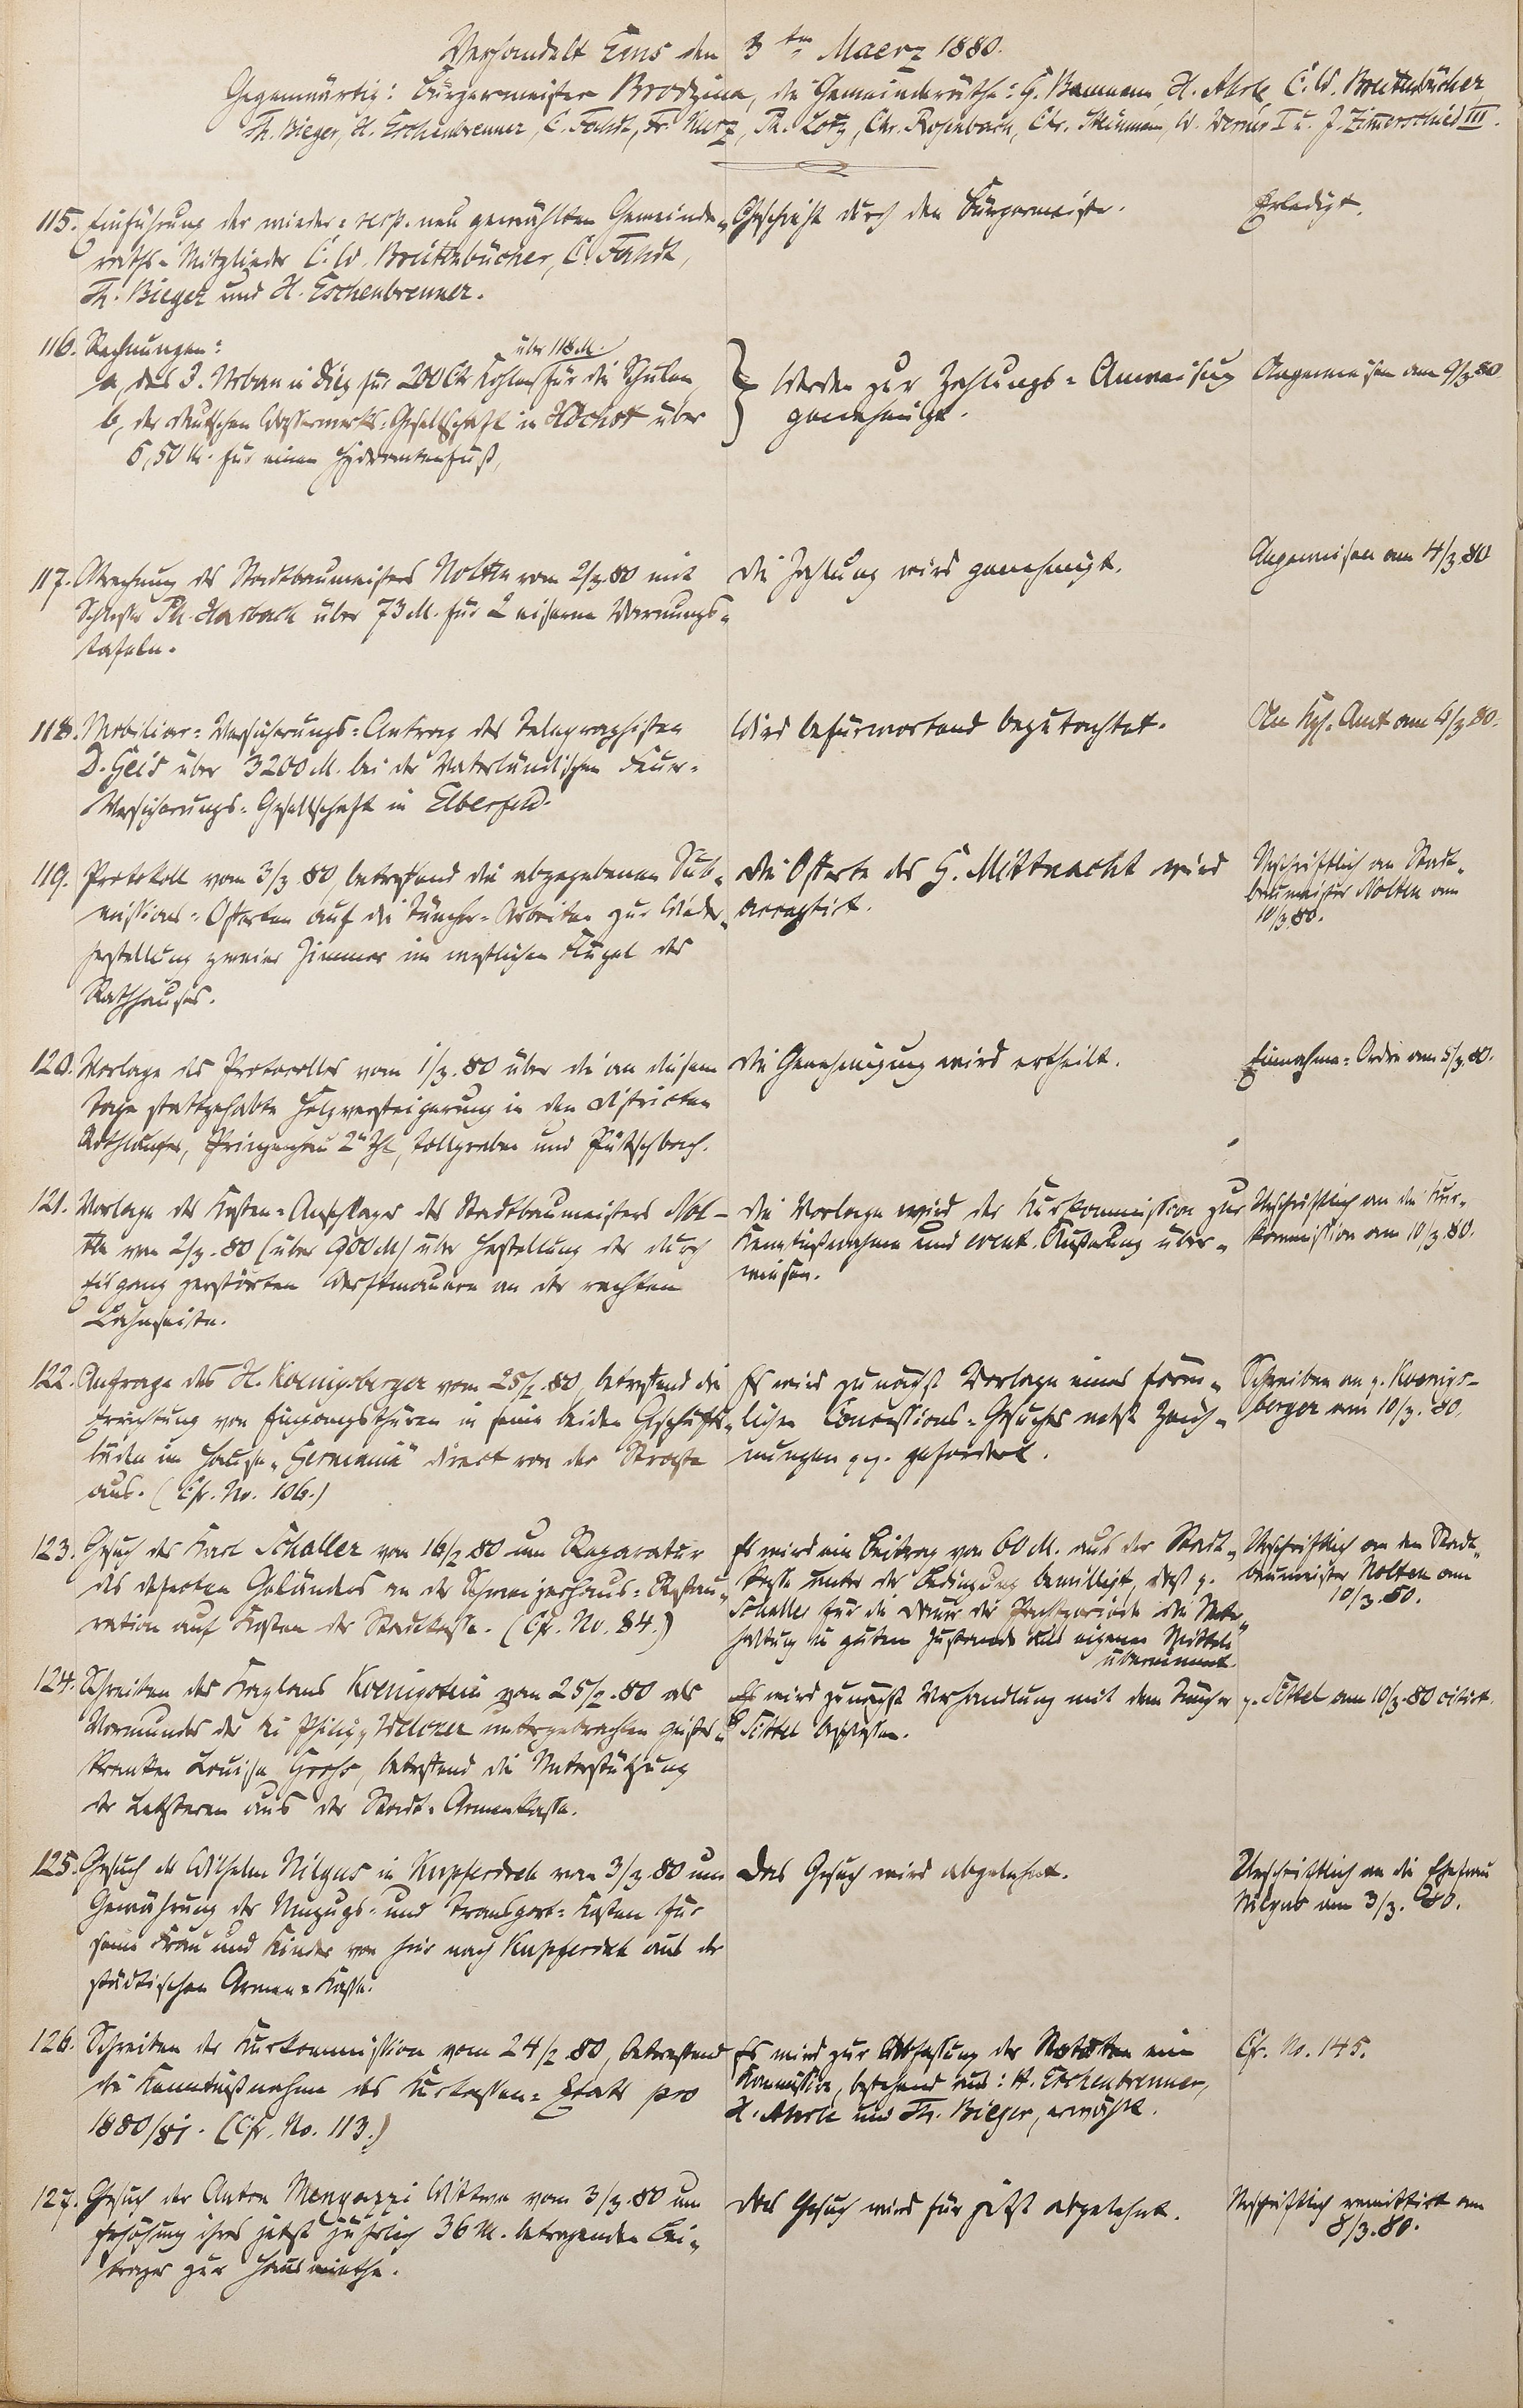 Verhandelt Ems den 3ten Maerz 1880.
Gegenwärtig: Bürgermeister Brodzina, die Gemeinderäthe: G. Baumann, H. Ahrle, C. W. Breitenbücher
Th. Bieger, H. Eschenbrenner, C. Fandt, Fr. Kurz, Ph. Lotz, Chr. Rosenbach, Chr. W. I u. J. Zimerschied III.
115. Einführung der wieder= resp. neu gewählten Gemeinde-
raths-Mitglieder C. W. Breitenbücher, C. Fandt,
Th. Bieger und H. Eschenbrenner.
Geschieht durch den Bürgermeister.
Erledigt.
116. Rechnungen:
über 118 M.
a, des J. Urban in Diez für 200 Ctr Kohlen für die Schulen
b, der deutschen Wasserwerks-Gesellschaft in Höchst über
5,50 M. für einen Hydrantenfuß,
Werden zur Zahlungs=Anweisung
genehmigt.
Angewiesen am 9/3 80.
117. Abrechnung des Stadtbaumeisters Nolten vom 2/3.80 mit
Schlosser Ph. Hasbach über 73 M. für 2 eiserne Warnungs-
tafeln.
Die Zahlung wird genehmigt.
Angewiesen am 4/3.80
118. Mobiliar=Versicherungs=Antrag des Telegraphisten
D. Geis über 3200 M. bei der Vaterländischen Feuer-
Versicherungs=Gesellschaft in Elberfeld.
Wird befürwortend begutachtet.
An Kgl. Amt am 4/3.80.
119. Protokoll vom 3/3 80, betreffend die abgegebenen Sub-
missions=Offerten auf die Tüncher=Arbeiten zur Wieder-
herstellung zweier Zimmer im westlichen Flügel des
Rathhauses.
Die Offerte des G. Mittnacht wird
acceptirt.
Urschriftlich an Stadt-
baumeister Nolten am
10/3.80.
120. Vorlage des Protocolles vom 1/3.80 über die an diesem
Tage stattgehabte Holzversteigerung in den Districten
Prinzenhau 2r Thl, Tollgraben und
Die Genehmigung wird ertheilt.
Einnahme=Ordre am 5/3.80.
121. Vorlage des Kosten=Anschlages des Stadtbaumeisters Nol-
ten vom 2/3.80 (über 900 M) über Herstellung der durch
Eisgang zerstörten Werftmauern an der rechten
Lahnseite.
Die Vorlage wird der Kurkommission zur
Kenntnißnahme und event. Äußerung über-
wiesen.
Urschriftlich an die Kur-
kommission am 10/3.80.
122. Anfrage des H. Koenigsberger vom 25/2.80, betreffend die
Errichtung von Eingangsthüren in seine beiden Geschäfts-
läden im Hause „Germania" direct von der Straße
aus. (Cfr. No. 106.)
Es wird zunächst Vorlage eines förm-
lichen Concessions=Gesuches nebst Zeich-
nungen pp. gefordert.
Schreiben an p. Koenigs-
berger am 10/3.80.
123. Gesuch des Karl Schaller vom 16/2 80 um Reparatur
des defecten Geländers an der Schweizerhaus=Restau-
ration auf Kosten der Stadtkasse. (Cfr. No. 84.)
Es wird ein Beitrag von 60 M. aus der Stadt-
kasse unter der Bedingung bewilligt, daß p.
Schaller für die Dauer der Pachtperiode die Unter-
haltung in gutem Zustande aus eigenen Mitteln
übernimmt.
Urschriftlich an den Stadt-
baumeister Nolten am
10/3.80.
124. Schreiben des Kaplans Koenigstein vom 25/2.80 als
Vormundes der bei Philipp untergebrachten geistes-
kranken Louise Grohs, betreffend die Unterstützung
der Letzteren aus der Stadt=Armenkasse.
Es wird zunächst Verhandlung mit dem Tüncher
Sittel beschlossen.
p. Sittel am 10/3.80 citirt.
125. Gesuch des Wilhelm Nilgus in Kupferdreh vom 3/3.80 um
Gewährung der Umzugs= und Transport=Kosten für
seine Frau und Kinder von hier nach Kupferdreh aus der
städtischen Armen=Kasse.
Das Gesuch wird abgelehnt.
Urschriftlich an die Ehefrau
Nilgus am 3/3.80.
126. Schreiben der Kurkommission vom 24/2 80, betreffend
die Kenntnißnahme des Kurkassen=Etats pro
1880/81. (Cfr. No. 113.)
Es wird zur Abfassung der eine
Kommission, bestehend aus: H. Eschenbrenner,
H. Ahrle und Th. Bieger, erwählt.
Cfr. No. 145.
127. Gesuch der Anton Mengazzi Wittwe vom 3/3.80 um
Erhöhung ihres jetzt jährlich 36 M. betragenden Bei-
trages zur Hausmiethe.
Das Gesuch wird für jetzt abgelehnt.
Urschriftlich remittirt am
8/3.80.